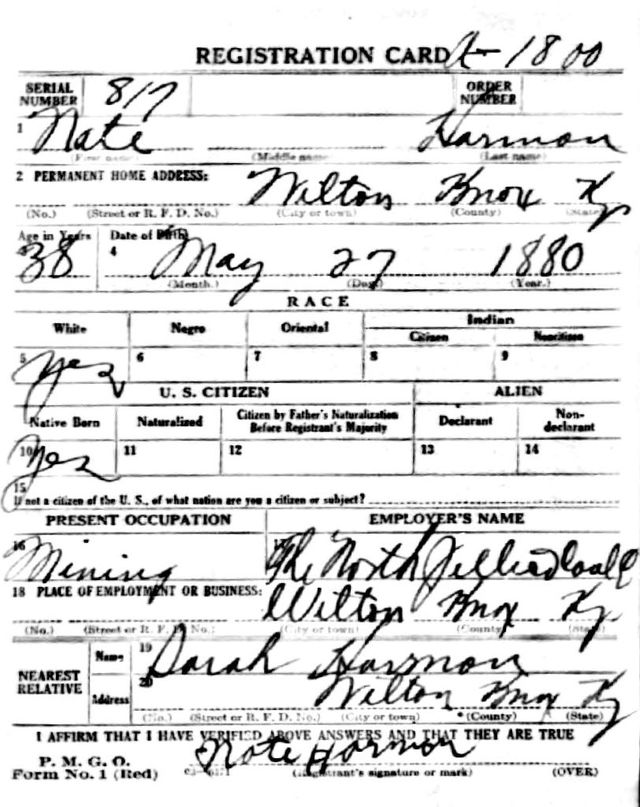 REGISTRATION CARD A-1800
SERIAL NUMBER 817 ORDER NUMBER
1 Nate Harmon
(First name) (Middle name) (Last name)
2 PERMANENT HOME ADDRESS: Wilton Knox Ky
(No.) (Street or R. F. D. No.) (City or town) (County) (State)
Age in Years Date of Birth
3 38 4 May 27 1880
(Month.) (Day) (Year.)
RACE
White Negro Oriental Indian
Citizen Noncitizen
5 Yes 6 7 8 9
U. S. CITIZEN ALIEN
Native Born Naturalized Citizen by Father's Naturalization Before Registrant's Majority Declarant Non-declarant
10 Yes 11 12 13 14
15
If not a citizen of the U. S., of what nation are you a citizen or subject?
PRESENT OCCUPATION EMPLOYER'S NAME
16 Mining The North Jellico Coal Co
18 PLACE OF EMPLOYMENT OR BUSINESS: Wilton Knox Ky
(No.) (Street or R. F. D. No.) (City or town) (County) (State)
NEAREST RELATIVE Name 19 Sarah Harmon
Address 20 Wilton Knox Ky
(No.) (Street or R. F. D. No.) (City or town) (County) (State)
I AFFIRM THAT I HAVE VERIFIED ABOVE ANSWERS AND THAT THEY ARE TRUE
P. M. G. O.
Form No. 1 (Red) Nate Harmon
(Registrant's signature or mark) (OVER)